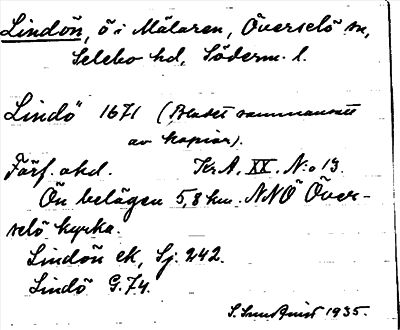 Lindön, ö i Mälaren, Överselö sn,
Selebo hd, Söderm. l.
Lindö 1671 (Bladet sammansatt
av kopior).
Förf. okd. Kr.A. XX. N:o 13.
Ön belägen 5,8 km. NNÖ Över-
selö kyrka.
Lindön ek, Sj. 242.
Lindö G. 74.
1935.